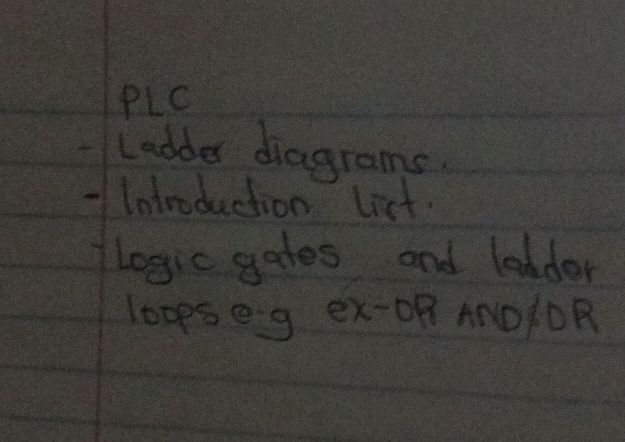 PLC
- Ladder diagrams.
- Introduction list.
- Logic gates and ladder
loops e.g ex-OR AND/OR